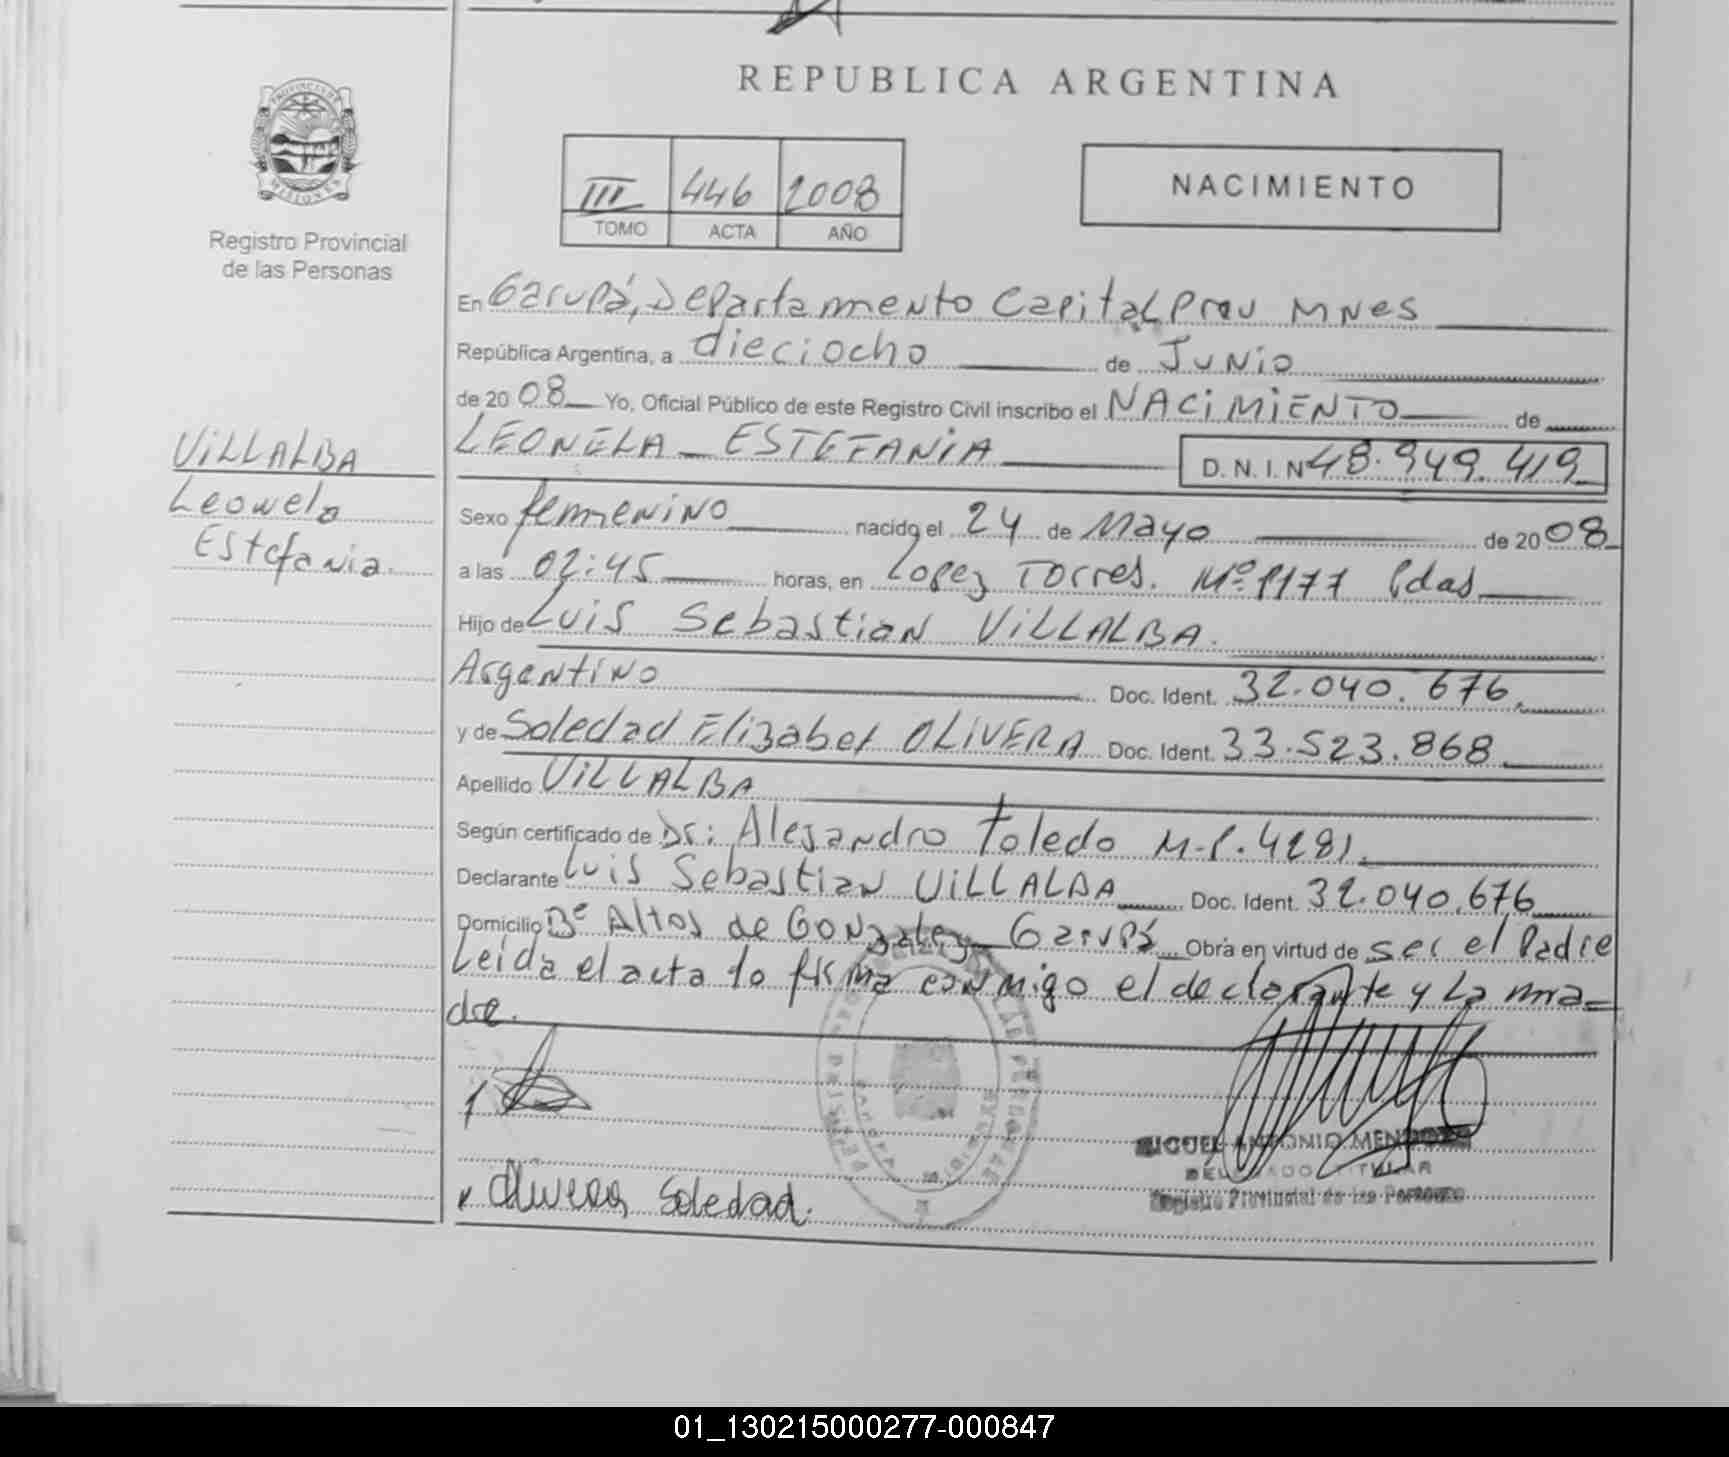 REPUBLICA ARGENTINA
PROVINCIA DE
MISIONES
Registro Provincial
de las Personas
III 446 2008
TOMO ACTA AÑO
NACIMIENTO
En Garupá, Departamento Capital Prov MNes
República Argentina, a dieciocho de Junio
de 20 08 Yo, Oficial Público de este Registro Civil inscribo el NACIMIENTO de
LEONELA ESTEFANIA D. N. I. N 48.949.419
VILLALBA
Leonela
Estefania.
Sexo femenino nacido el 24 de Mayo de 20 08
a las 02:45 horas, en Lopez Torres. Nº 1177 Pdas
Hijo de Luis Sebastian VILLALBA.
Argentino Doc. Ident. 32.040.676
y de Soledad Elizabet OLIVERA Doc. Ident. 33.523.868
Apellido VILLALBA
Según certificado de Dr: Alejandro Toledo M.P. 4281.
Declarante Luis Sebastian VILLALBA Doc. Ident. 32.040.676
Domicilio Bº Altos de Gonzalez Garupá Obra en virtud de ser el Padre
Leida el acta lo firma conmigo el declarante y La ma-
dre.
MIGUEL ANTONIO MENDOZA
DELEGADO TITULAR
Registro Provincial de las Personas
Olivera Soledad.
01_130215000277-000847